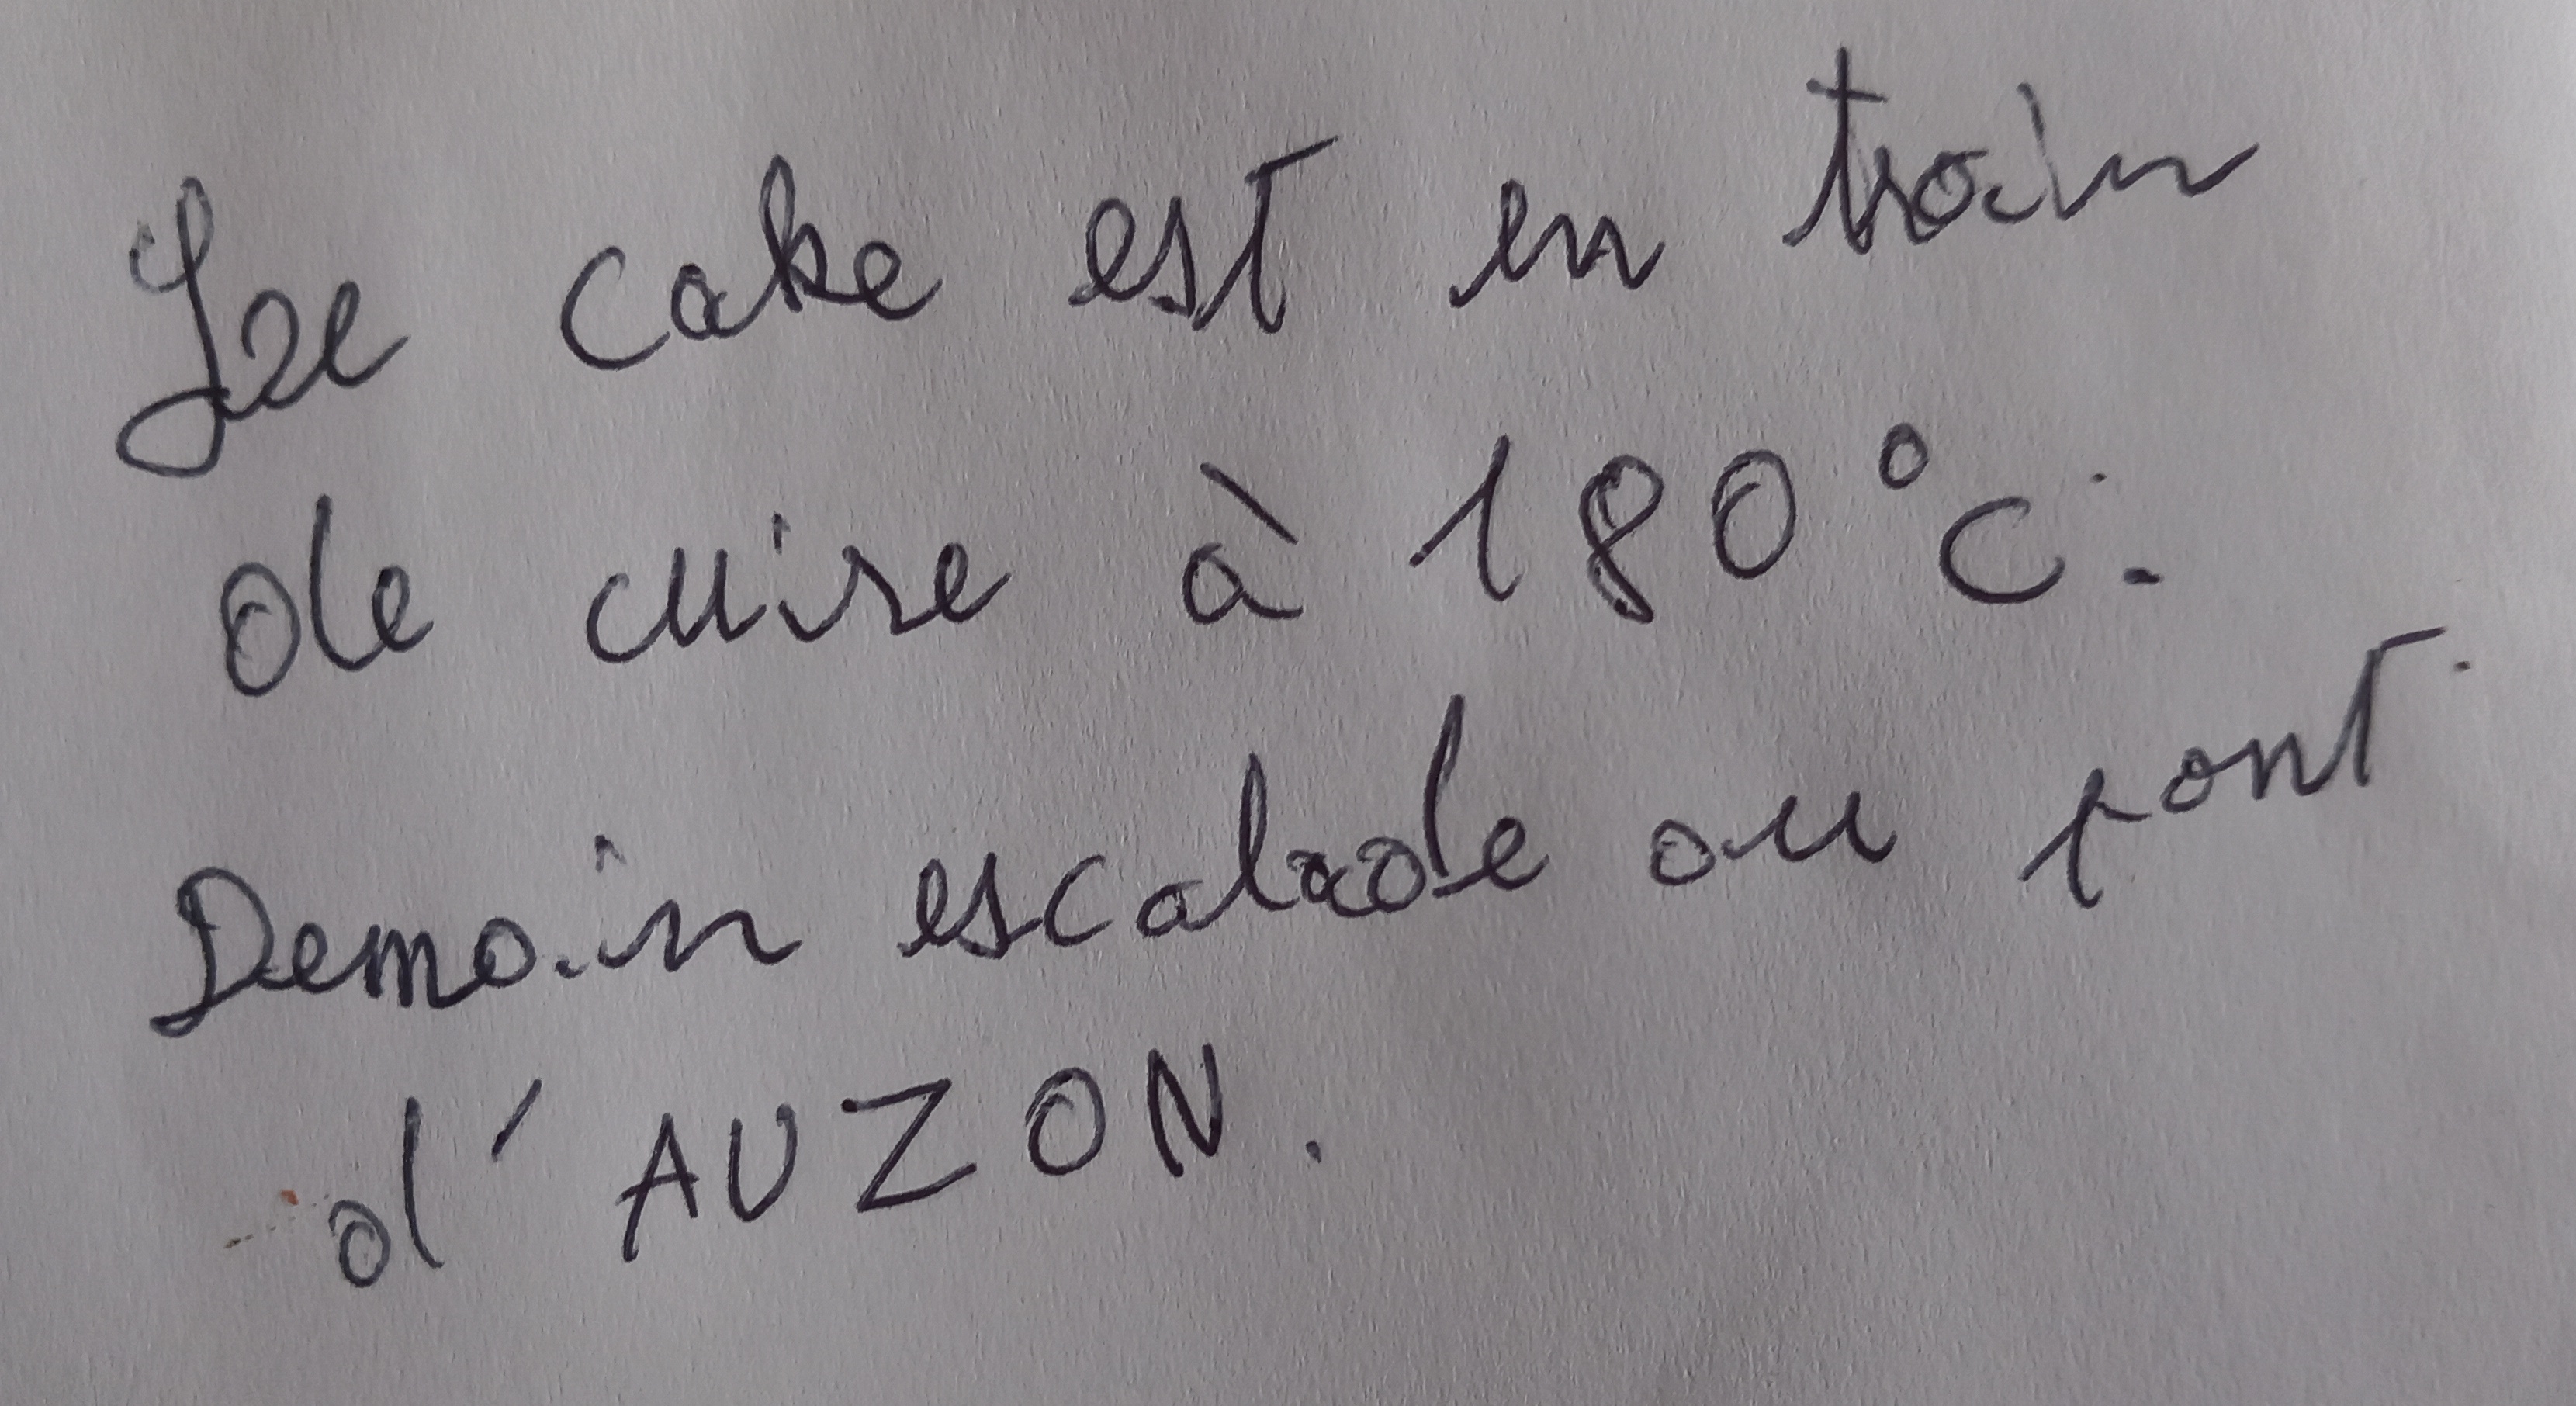 Le cake est en train
de cuire à 180°C.
Demain escalade au pont
d'AUZON.